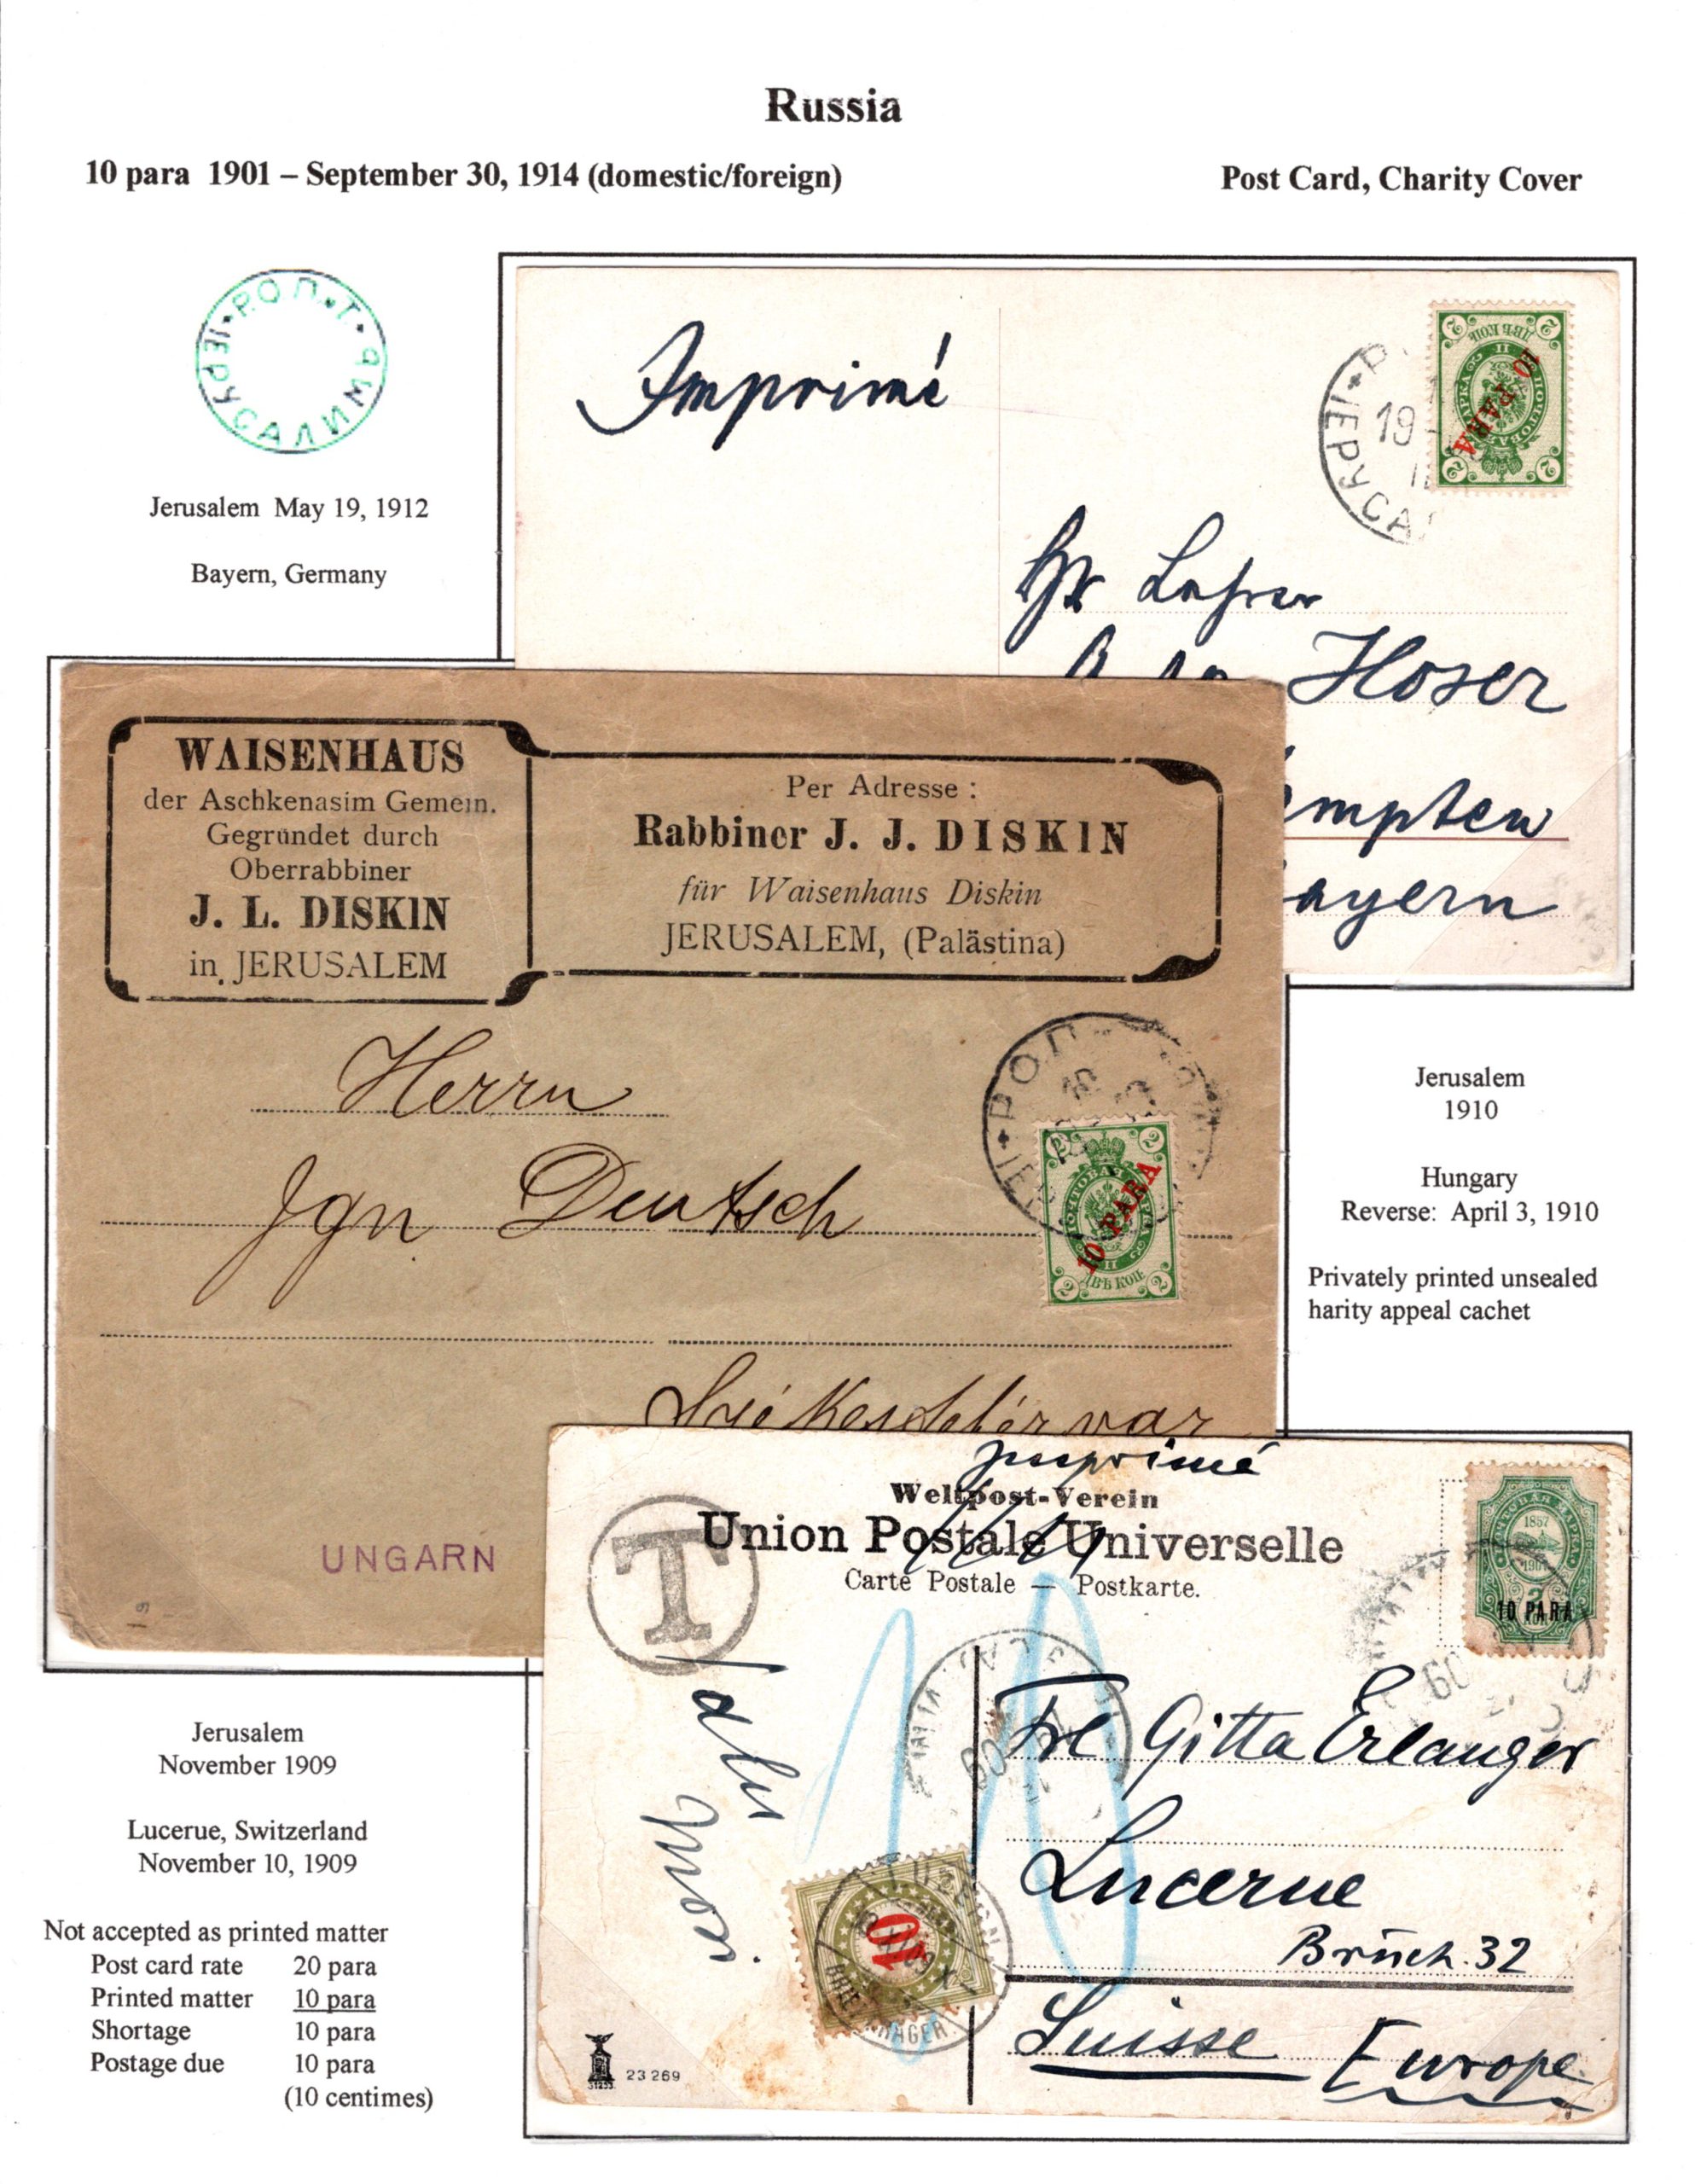 Russia
10 para 1901 – September 30, 1914 (domestic/foreign)
Post Card, Charity Cover
Р.О.П.и.Т. ІЕРУСАЛИМЪ
Jerusalem May 19, 1912
Bayern, Germany
Imprimé
10 PARA
ДВѢ КОП.
19
ІЕРУСА
Hr Lehrer
Hoser
empten
ayern
WAISENHAUS
der Aschkenasim Gemein.
Gegründet durch
Oberrabbiner
J. L. DISKIN
in JERUSALEM
Per Adresse :
Rabbiner J. J. DISKIN
für Waisenhaus Diskin
JERUSALEM, (Palästina)
Herrn
Ign Deutsch
10 PARA
ДВѢ КОП.
UNGARN
Jerusalem
1910
Hungary
Reverse: April 3, 1910
Privately printed unsealed
harity appeal cachet
Imprimé
Weltpost-Verein
Union Postale Universelle
Carte Postale — Postkarte.
T
1857
10 PARA
10
Frl Gitta Erlanger
Lucerne
Brüch. 32
Suisse Europe
10
BRIEFTRÄGER.
31253
23269
Jerusalem
November 1909
Lucerue, Switzerland
November 10, 1909
Not accepted as printed matter
Post card rate 20 para
Printed matter 10 para
Shortage 10 para
Postage due 10 para
(10 centimes)